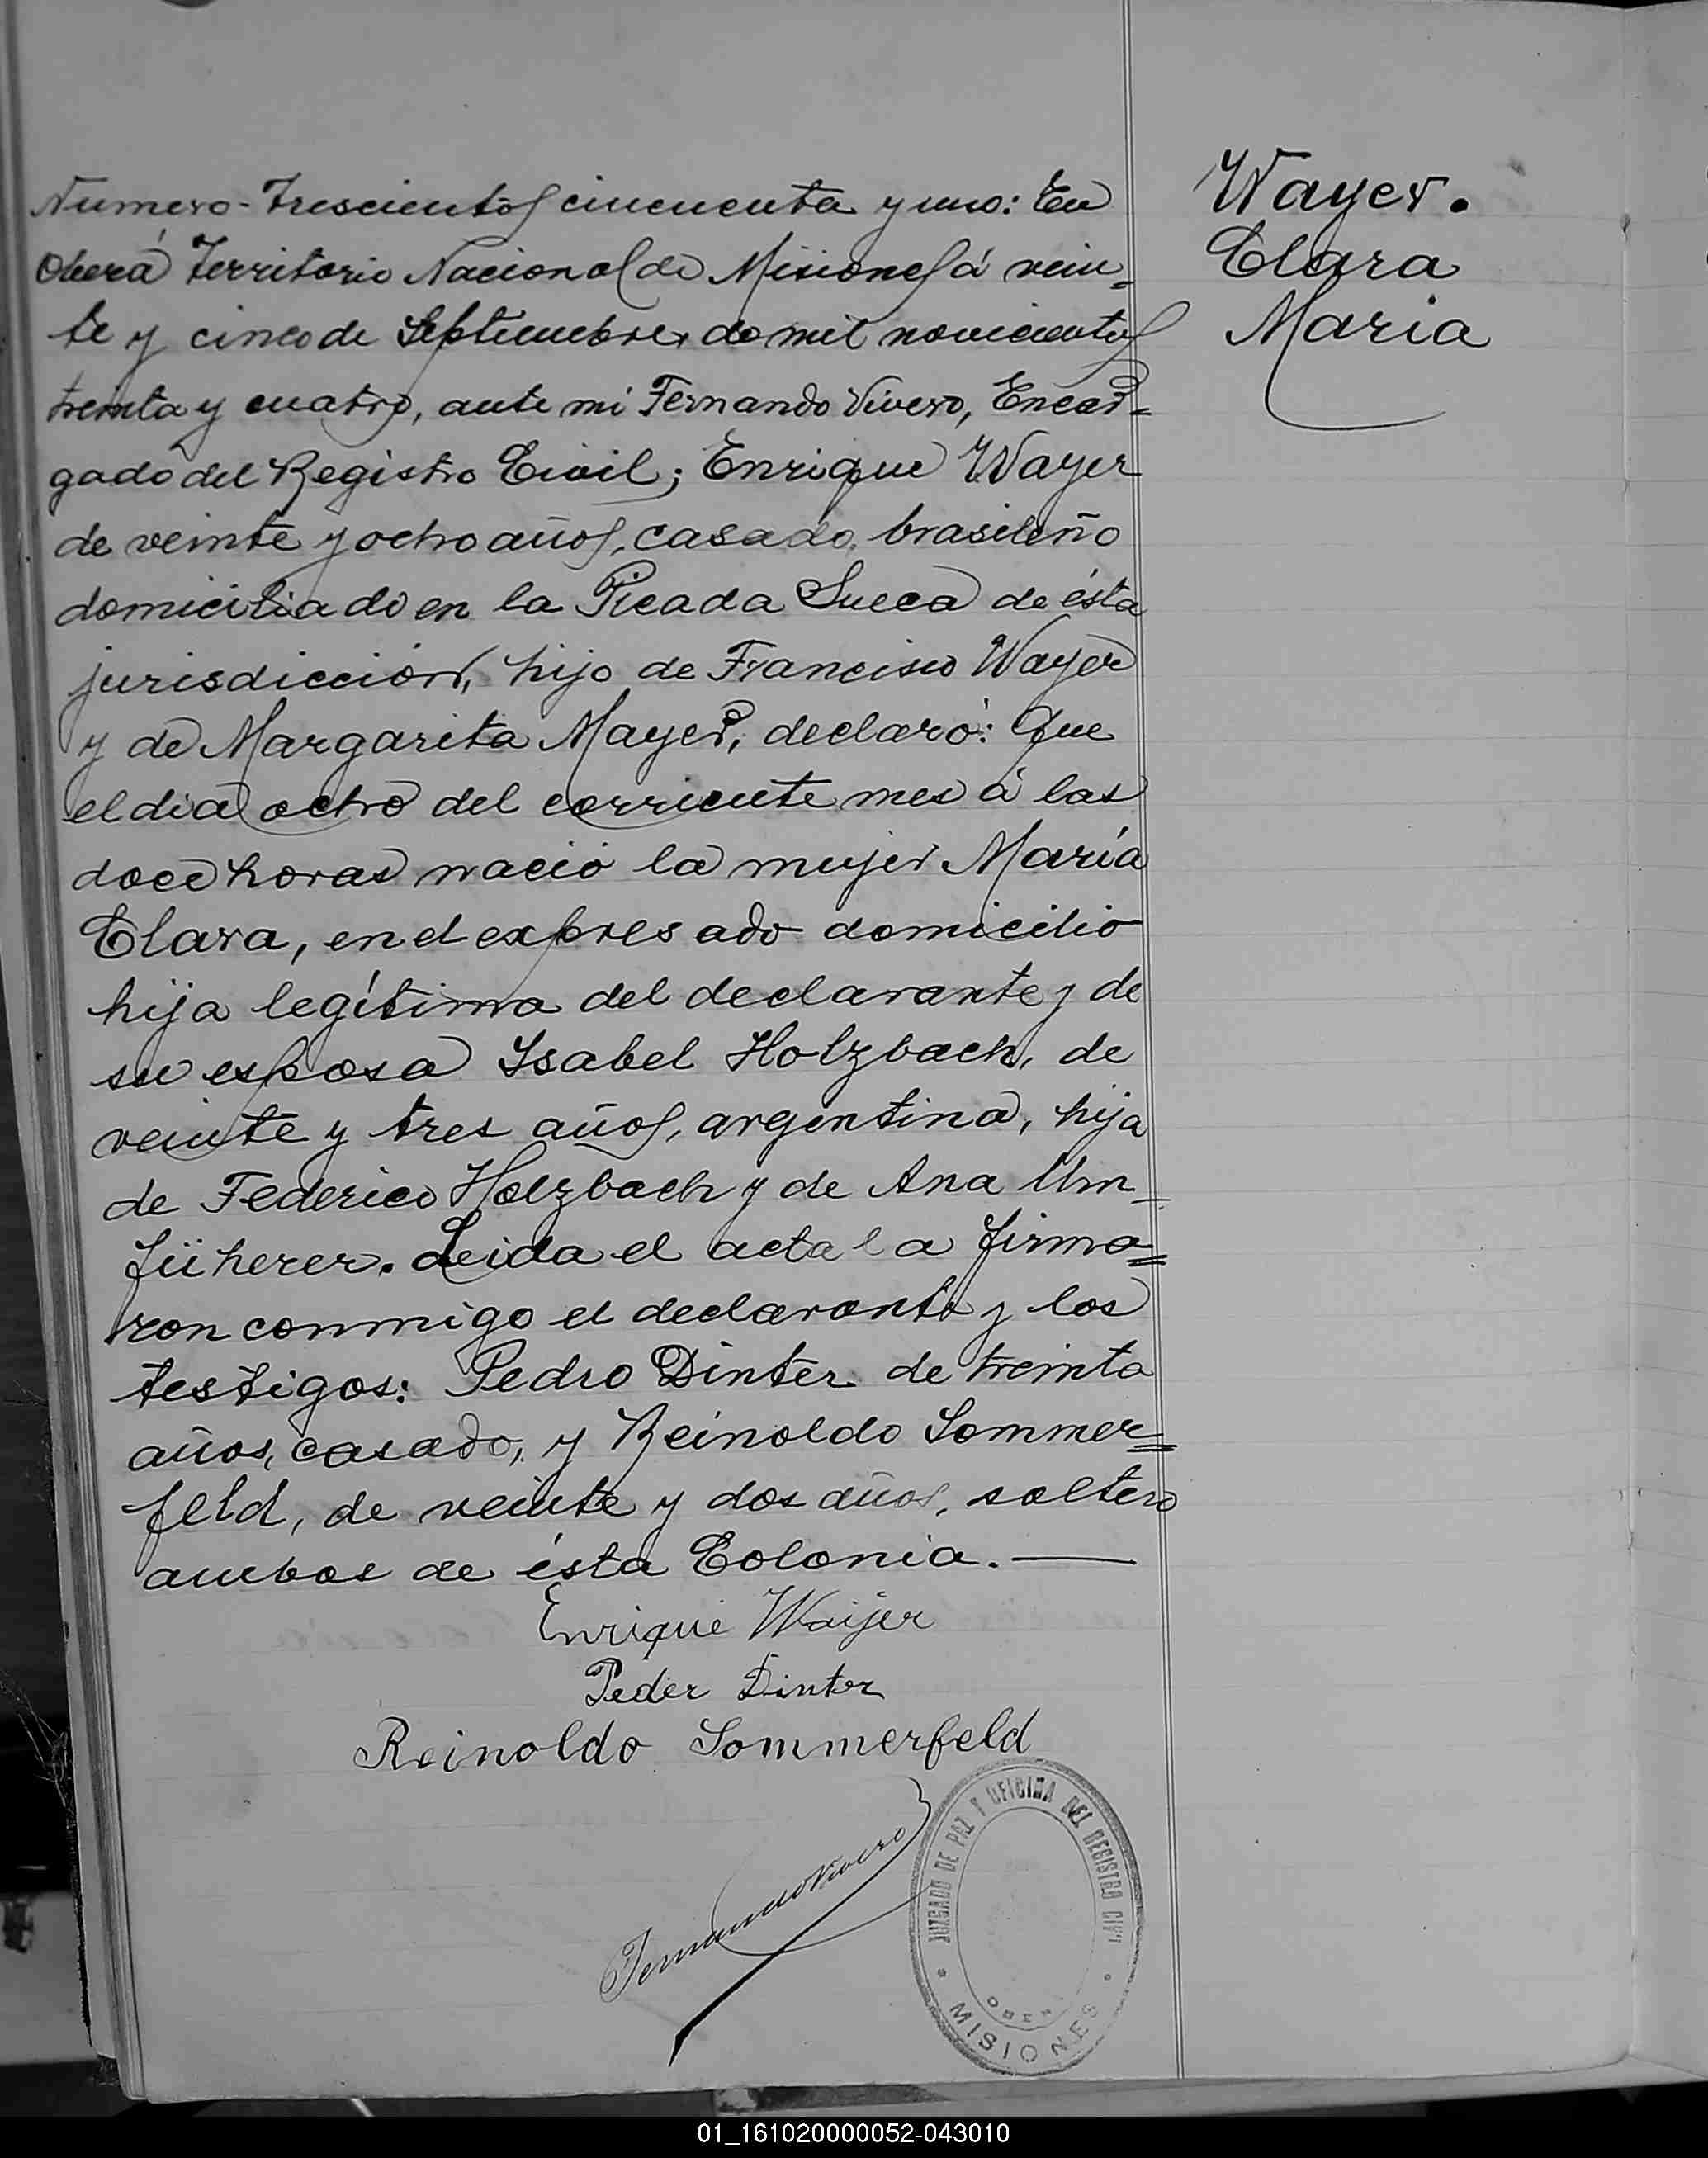 Wayer.
Clara
Maria
Numero - Trescientos cincuenta y uno: En
Oberá Territorio Nacional de Misiones á vein-
te y cinco de Septiembre de mil novecientos
treinta y cuatro, ante mi Fernando Vivero, Encar-
gado del Registro Civil; Enrique Wayer
de veinte y ocho años, casado, brasileño
domiciliado en la Picada Sueca de ésta
jurisdicción, hijo de Francisco Wayer
y de Margarita Mayer, declaró: Que
el dia ocho del corriente mes á las
doce horas nació la mujer María
Clara, en el expresado domicilio
hija legítima del declarante y de
su esposa Isabel Holzbach, de
veinte y tres años, argentina, hija
de Federico Holzbach y de Ana Um-
füherer. Leida el acta la firma=
ron conmigo el declarante y los
testigos: Pedro Dinter de treinta
años, casado, y Reinoldo Sommer=
feld, de veinte y dos años, soltero
ambos de ésta Colonia.—
Enrique Waijer
Peder Dinter
Reinoldo Sommerfeld
Fernando Vivero
JUZGADO DE PAZ Y OFICINA DEL REGISTRO CIVIL
OBERA
* MISIONES *
01_161020000052-043010